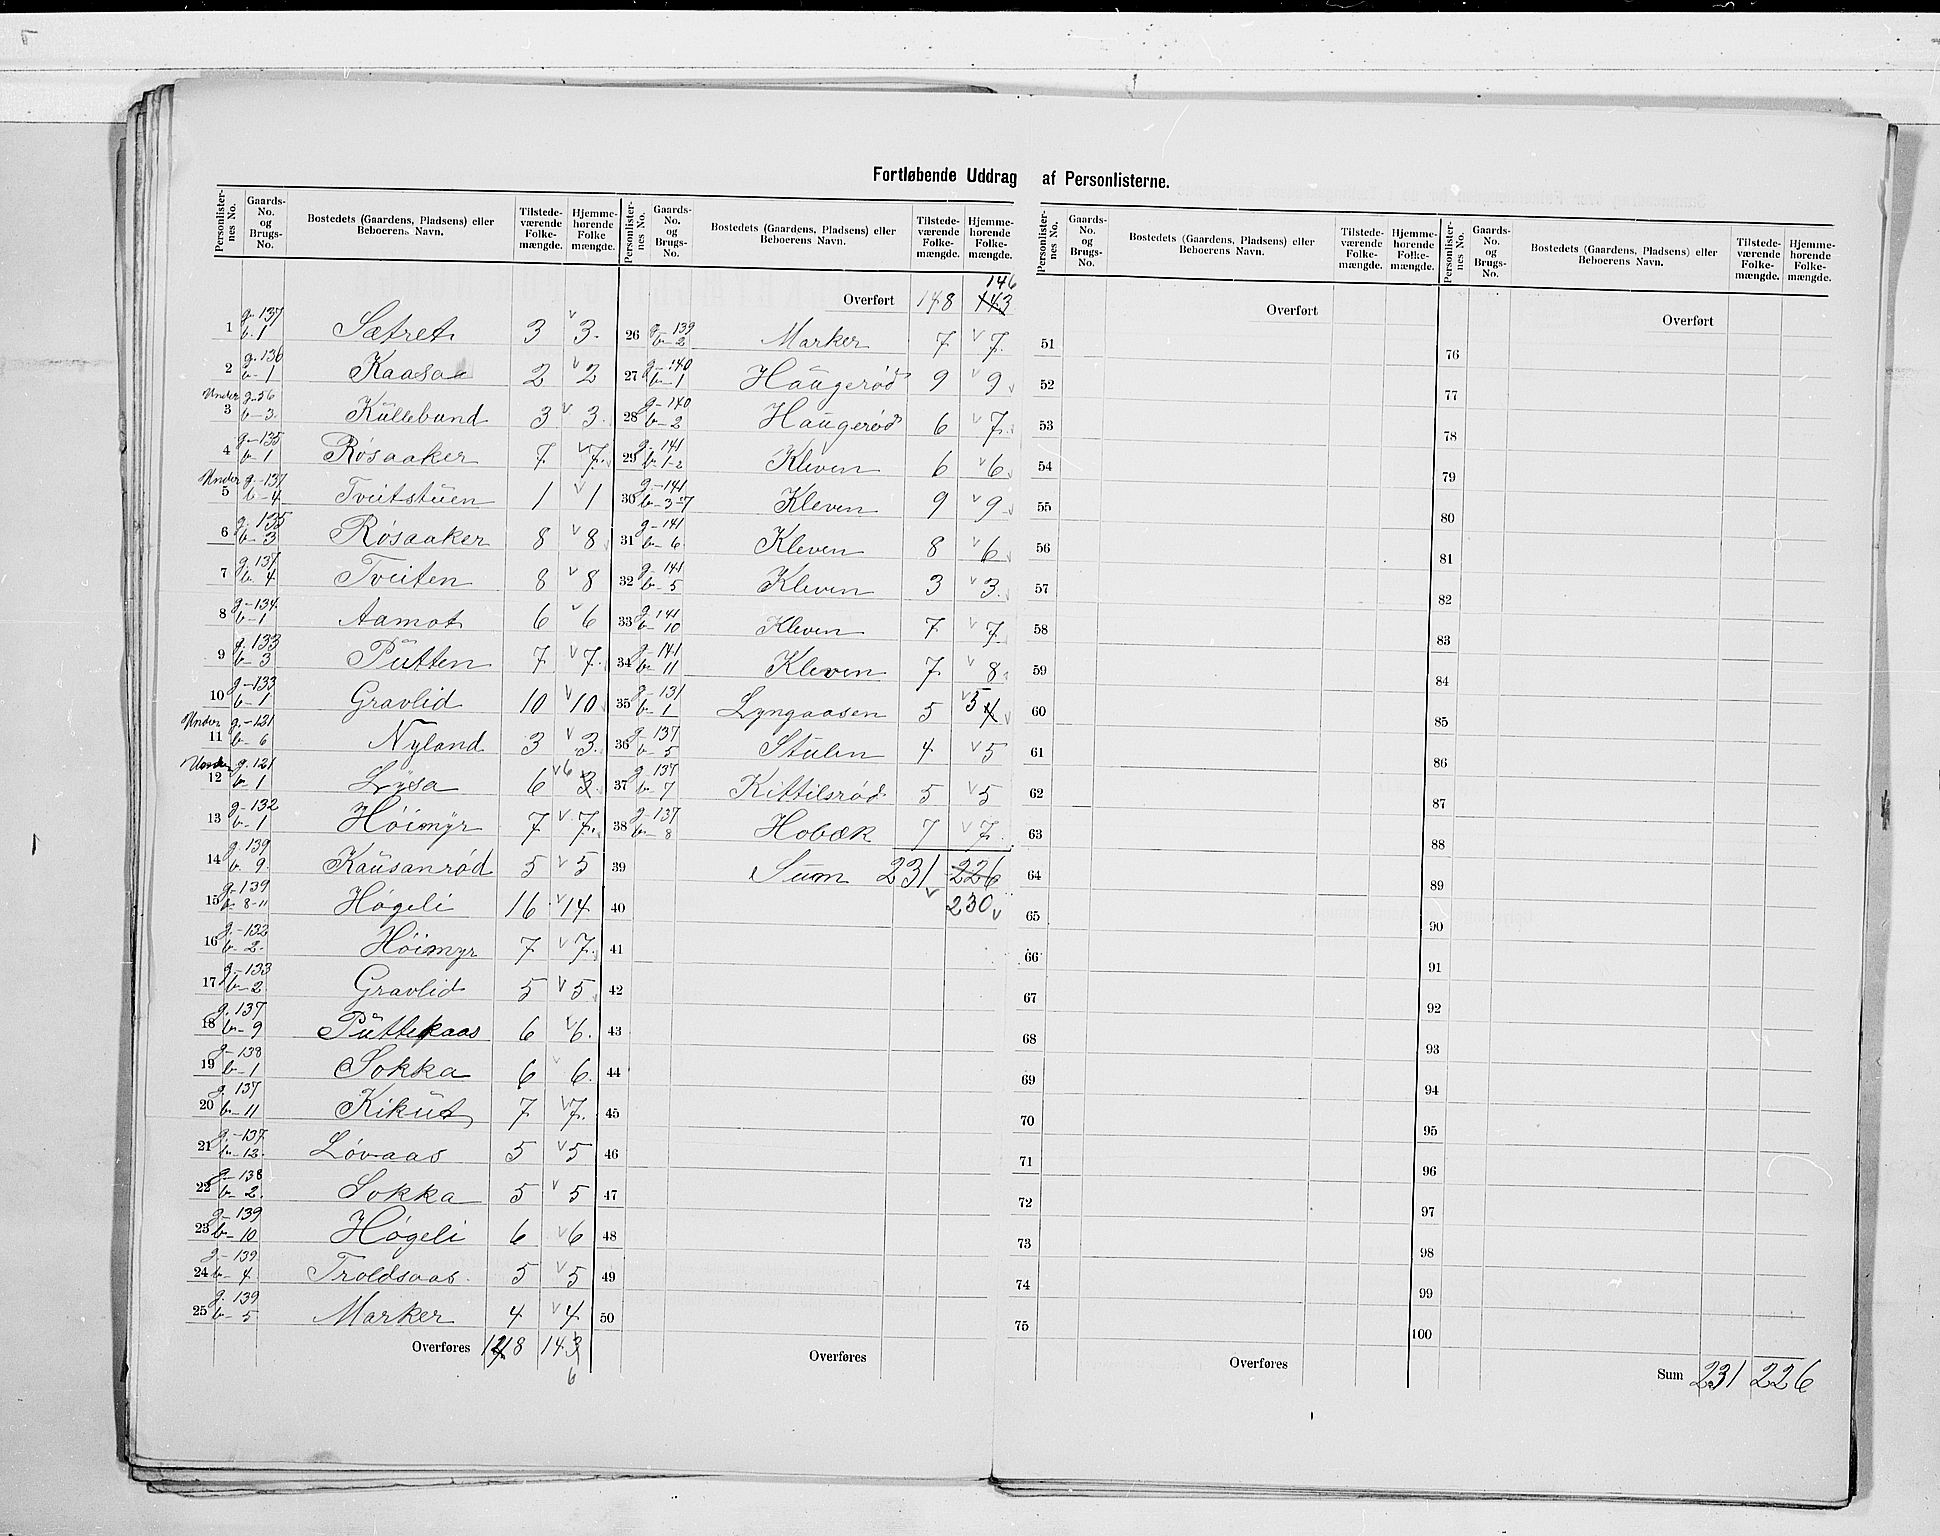 Fortløbende Uddrag af Personlisterne.
Personlisternes No. | Gaards-No. og Brugs-No. | Bostedets (Gaardens, Pladsens) eller Beboerens Navn. | Tilstedeværende Folkemængde. | Hjemmehørende Folkemængde.
1 g. 137 b. 1 Sætret 3 v 3.
2 g. 136 b-1 Kaasaa 2 v 2
Under 3 g-56 b-3. Kullebund 3 v 3.
4 g-135 b-1 Røsaaker 7 v 7.
Under 5 g.-137 b-4 Tveitstuen 1 v 1
6 g. 135 b-3 Røsaaker 8 v 8
7 g. 137 b. 4 Tveiten 8 v 8
8 g-134 b-1 Aamot 6 v 6
9 g. 133 b-3 Putten 7 v 7.
10 g-133 b-1 Gravlid 10 v 10
Under 11 g.-121 b-6 Nyland 3 v 3.
Under 12 g. 121 b-1 Lysa 6 v 6 3.
13 g-132 b-1 Høimyr 7 v 7.
14 g. 139 b. 9. Kausanrød 5 v 5
15 g-139 b-8-11 Høgeli 16 v 14
16 g.-132 b-2. Høimyr 7 v 7.
17 g.-133 b-2 Gravlid 5 v 5
18 g. 137 b-9 Puttekaas 6 v 6.
19 g-138 b-1 Sokka 6 v 6.
20 g. 137 b-11 Kikut 7 v 7.
21 g.-137 b-12. Løvaas 5 v 5
22 g-138 b-2. Sokka 5 v 5
23 g-139 b-10 Høgeli 6 v 6
24 g.-139 b-4 Troldsaas. 5 v 5
25 g. 139 b-5 Marker 4 v 4
Overføres 148 143
6
Personlisternes No. | Gaards-No. og Brugs-No. | Bostedets (Gaardens, Pladsens) eller Beboerens Navn. | Tilstedeværende Folkemængde. | Hjemmehørende Folkemængde.
146
Overført 148 143
26 g-139 b-2 Marker 7 v 7.
27 g-140 b-1 Haugerød 9 v 9
28 g-140 b-2 Haugerød 6 v 7.
29 g. 141 b. 1-2 Kleven 6 v 6
30 g.-141 b-3-7 Kleven 9 v 9
31 g-141 b-6. Kleven 8 v 6
32 g-141 b-5 Kleven 3 v 3.
33 g. 141 b-10 Kleven 7 v 7
34 g-141 b-11 Kleven 7 v 8
35 g-131 b-1 Lyngaasen 5 v 5 4
36 g-137 b-5 Stulen 4 v 5
37 g-137 b-7 Kittilsrød 5 v 5
38 g-137 b-8 Hobæk 7 v 7.
39 Sum 231 226
40 v 230 v
41
42
43
44
45
46
47
48
49
50
Overføres
Personlisternes No. | Gaards-No. og Brugs-No. | Bostedets (Gaardens, Pladsens) eller Beboerens Navn. | Tilstedeværende Folkemængde. | Hjemmehørende Folkemængde.
Overført
51
52
53
54
55
56
57
58
59
60
61
62
63
64
65
66
67
68
69
70
71
72
73
74
75
Overføres
Personlisternes No. | Gaards-No. og Brugs-No. | Bostedets (Gaardens, Pladsens) eller Beboerens Navn. | Tilstedeværende Folkemængde. | Hjemmehørende Folkemængde.
Overført
76
77
78
79
80
81
82
83
84
85
86
87
88
89
90
91
92
93
94
95
96
97
98
99
100
Sum 231 226